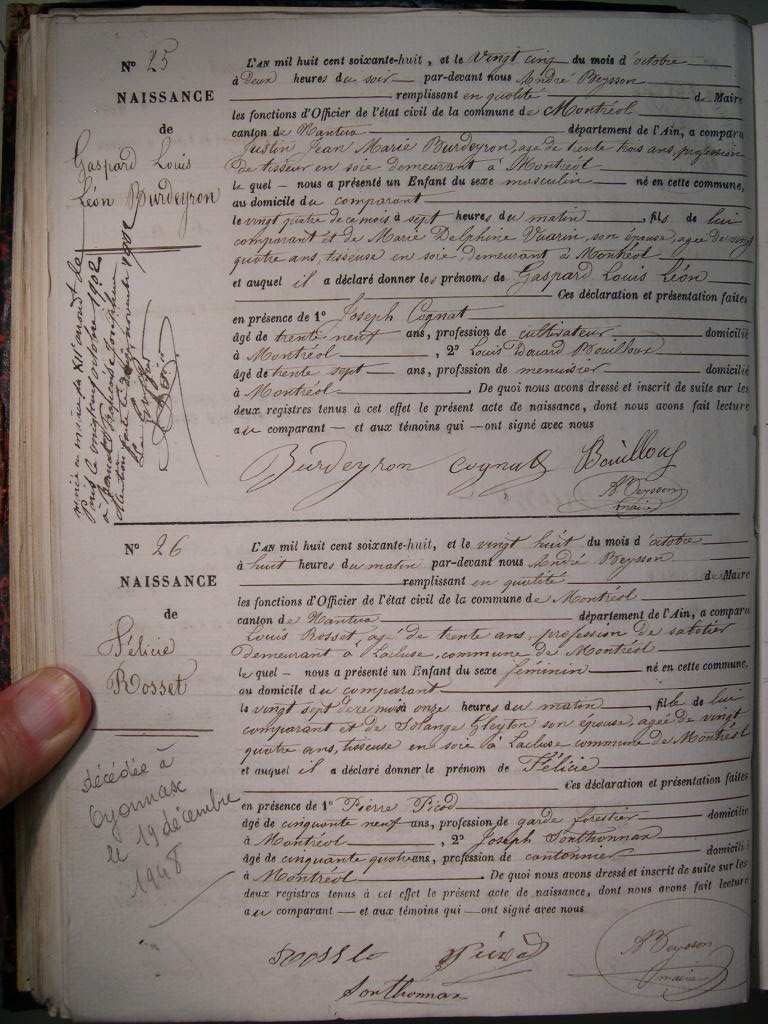 N° 25
NAISSANCE
de
Gaspard Louis
Léon Burdeyron
L'AN mil huit cent soixante-huit, et le vingt cinq du mois d'octobre
à deux heures du soir par-devant nous André Beysson
remplissant en qualité de Maire
les fonctions d'Officier de l'état civil de la commune de Montréal
canton de Nantua département de l'Ain, a comparu
Justin Jean Marie Burdeyron, agé de trente trois ans, profession
de tisseur en soie demeurant à Montréal
le quel – nous a présenté un Enfant du sexe masculin né en cette commune,
au domicile du comparant
le vingt quatre de ce mois à sept heures du matin, fils de lui
comparant et de Marie Delphine Vuarin, son épouse, agée de vingt
quatre ans, tisseuse en soie, demeurant à Montréal
et auquel il a déclaré donner les prénoms de Gaspard Louis Léon
Ces déclaration et présentation faites
en présence de 1° Joseph Cognat
âgé de trente neuf ans, profession de cultivateur domicilié
à Montréal, 2° Louis Edouard Bouilloux
âgé de trente sept ans, profession de menuisier domicilié
à Montréal. De quoi nous avons dressé et inscrit de suite sur les
deux registres tenus à cet effet le présent acte de naissance, dont nous avons fait lecture
au comparant — et aux témoins qui — ont signé avec nous
Burdeyron Cognat Bouilloux
A Beysson
maire
N° 26
NAISSANCE
de
Félicie
Rosset
décédée à
Oyonnax
le 19 décembre
1948
L'AN mil huit cent soixante-huit, et le vingt huit du mois d'octobre
à huit heures du matin par-devant nous André Beysson
remplissant en qualité de Maire
les fonctions d'Officier de l'état civil de la commune de Montréal
canton de Nantua département de l'Ain, a comparu
Louis Rosset, agé de trente ans, profession de sabotier
demeurant à Lacluse, commune de Montréal
le quel – nous a présenté un Enfant du sexe féminin né en cette commune,
au domicile du comparant
le vingt sept de ce mois à onze heures du matin, fille de lui
comparant et de Solange son épouse, agée de vingt
quatre ans, tisseuse en soie à Lacluse commune de Montréal
et auquel il a déclaré donner le prénom de Félicie
Ces déclaration et présentation faites
en présence de 1° Pierre Picod
âgé de cinquante neuf ans, profession de garde forestier domicilié
à Montréal, 2° Joseph Sonthonnax
âgé de cinquante quatre ans, profession de cantonnier domicilié
à Montréal. De quoi nous avons dressé et inscrit de suite sur les
deux registres tenus à cet effet le présent acte de naissance, dont nous avons fait lecture
au comparant — et aux témoins qui — ont signé avec nous
Picod
A Beysson
maire
Sonthonnax